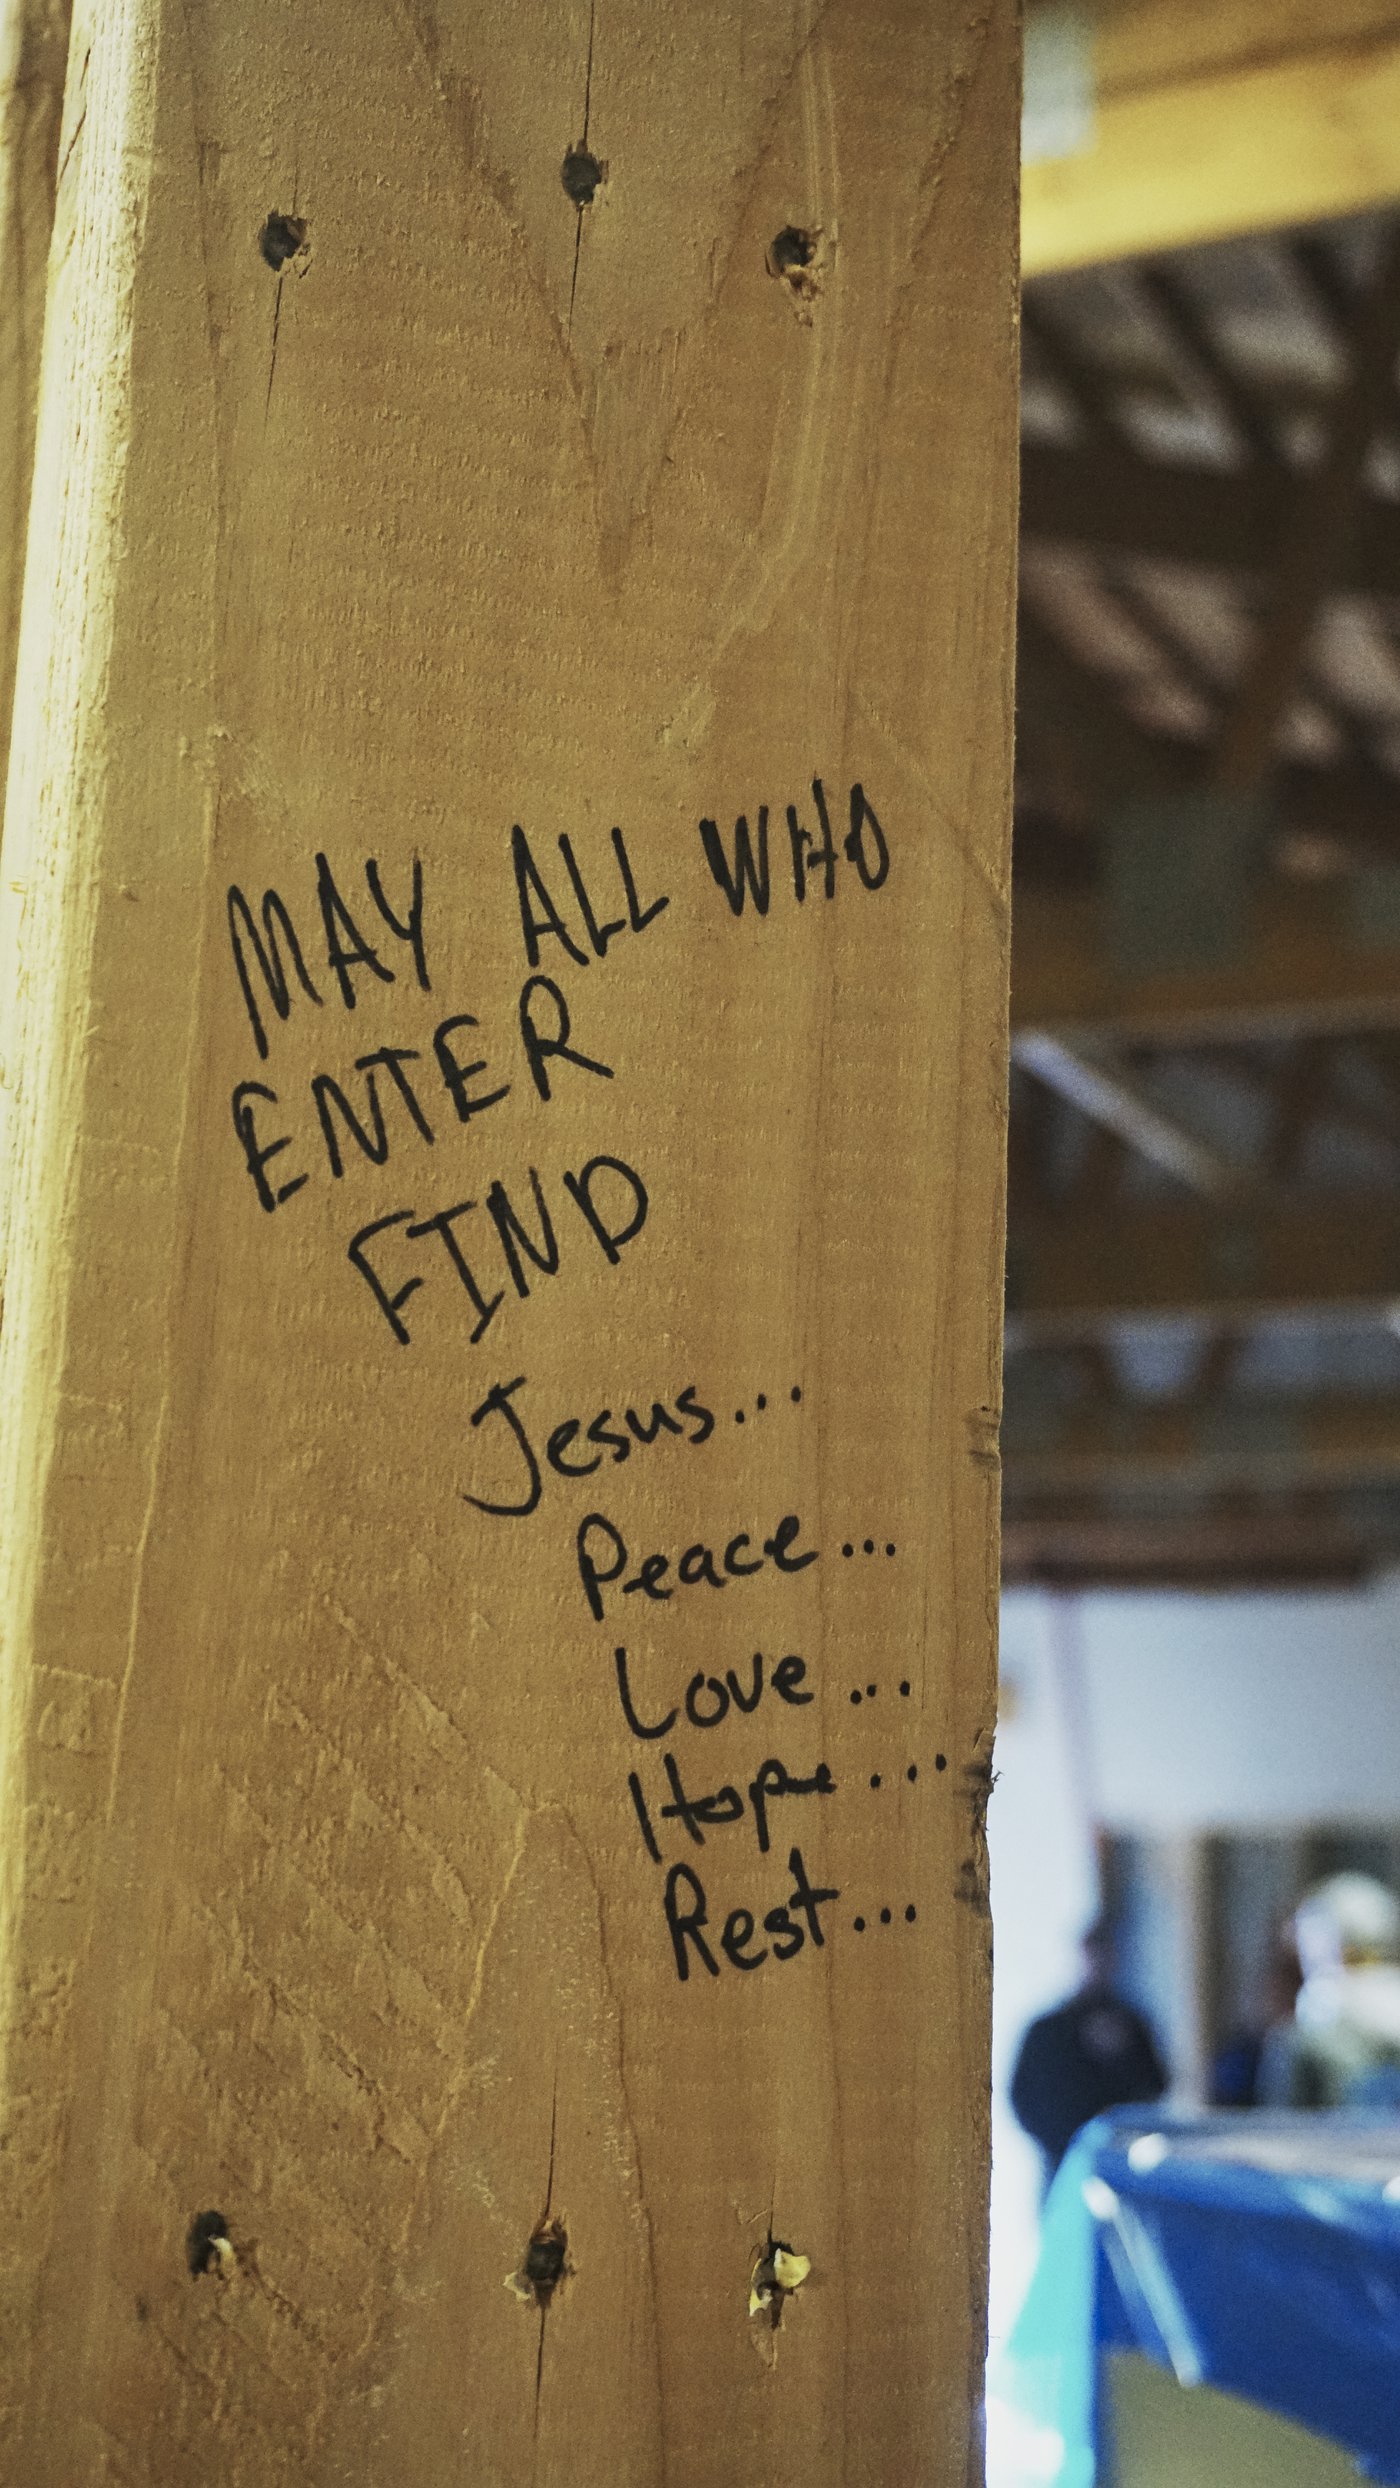 MAY ALL WHO
ENTER
FIND
Jesus...
Peace...
Love...
Hope...
Rest...